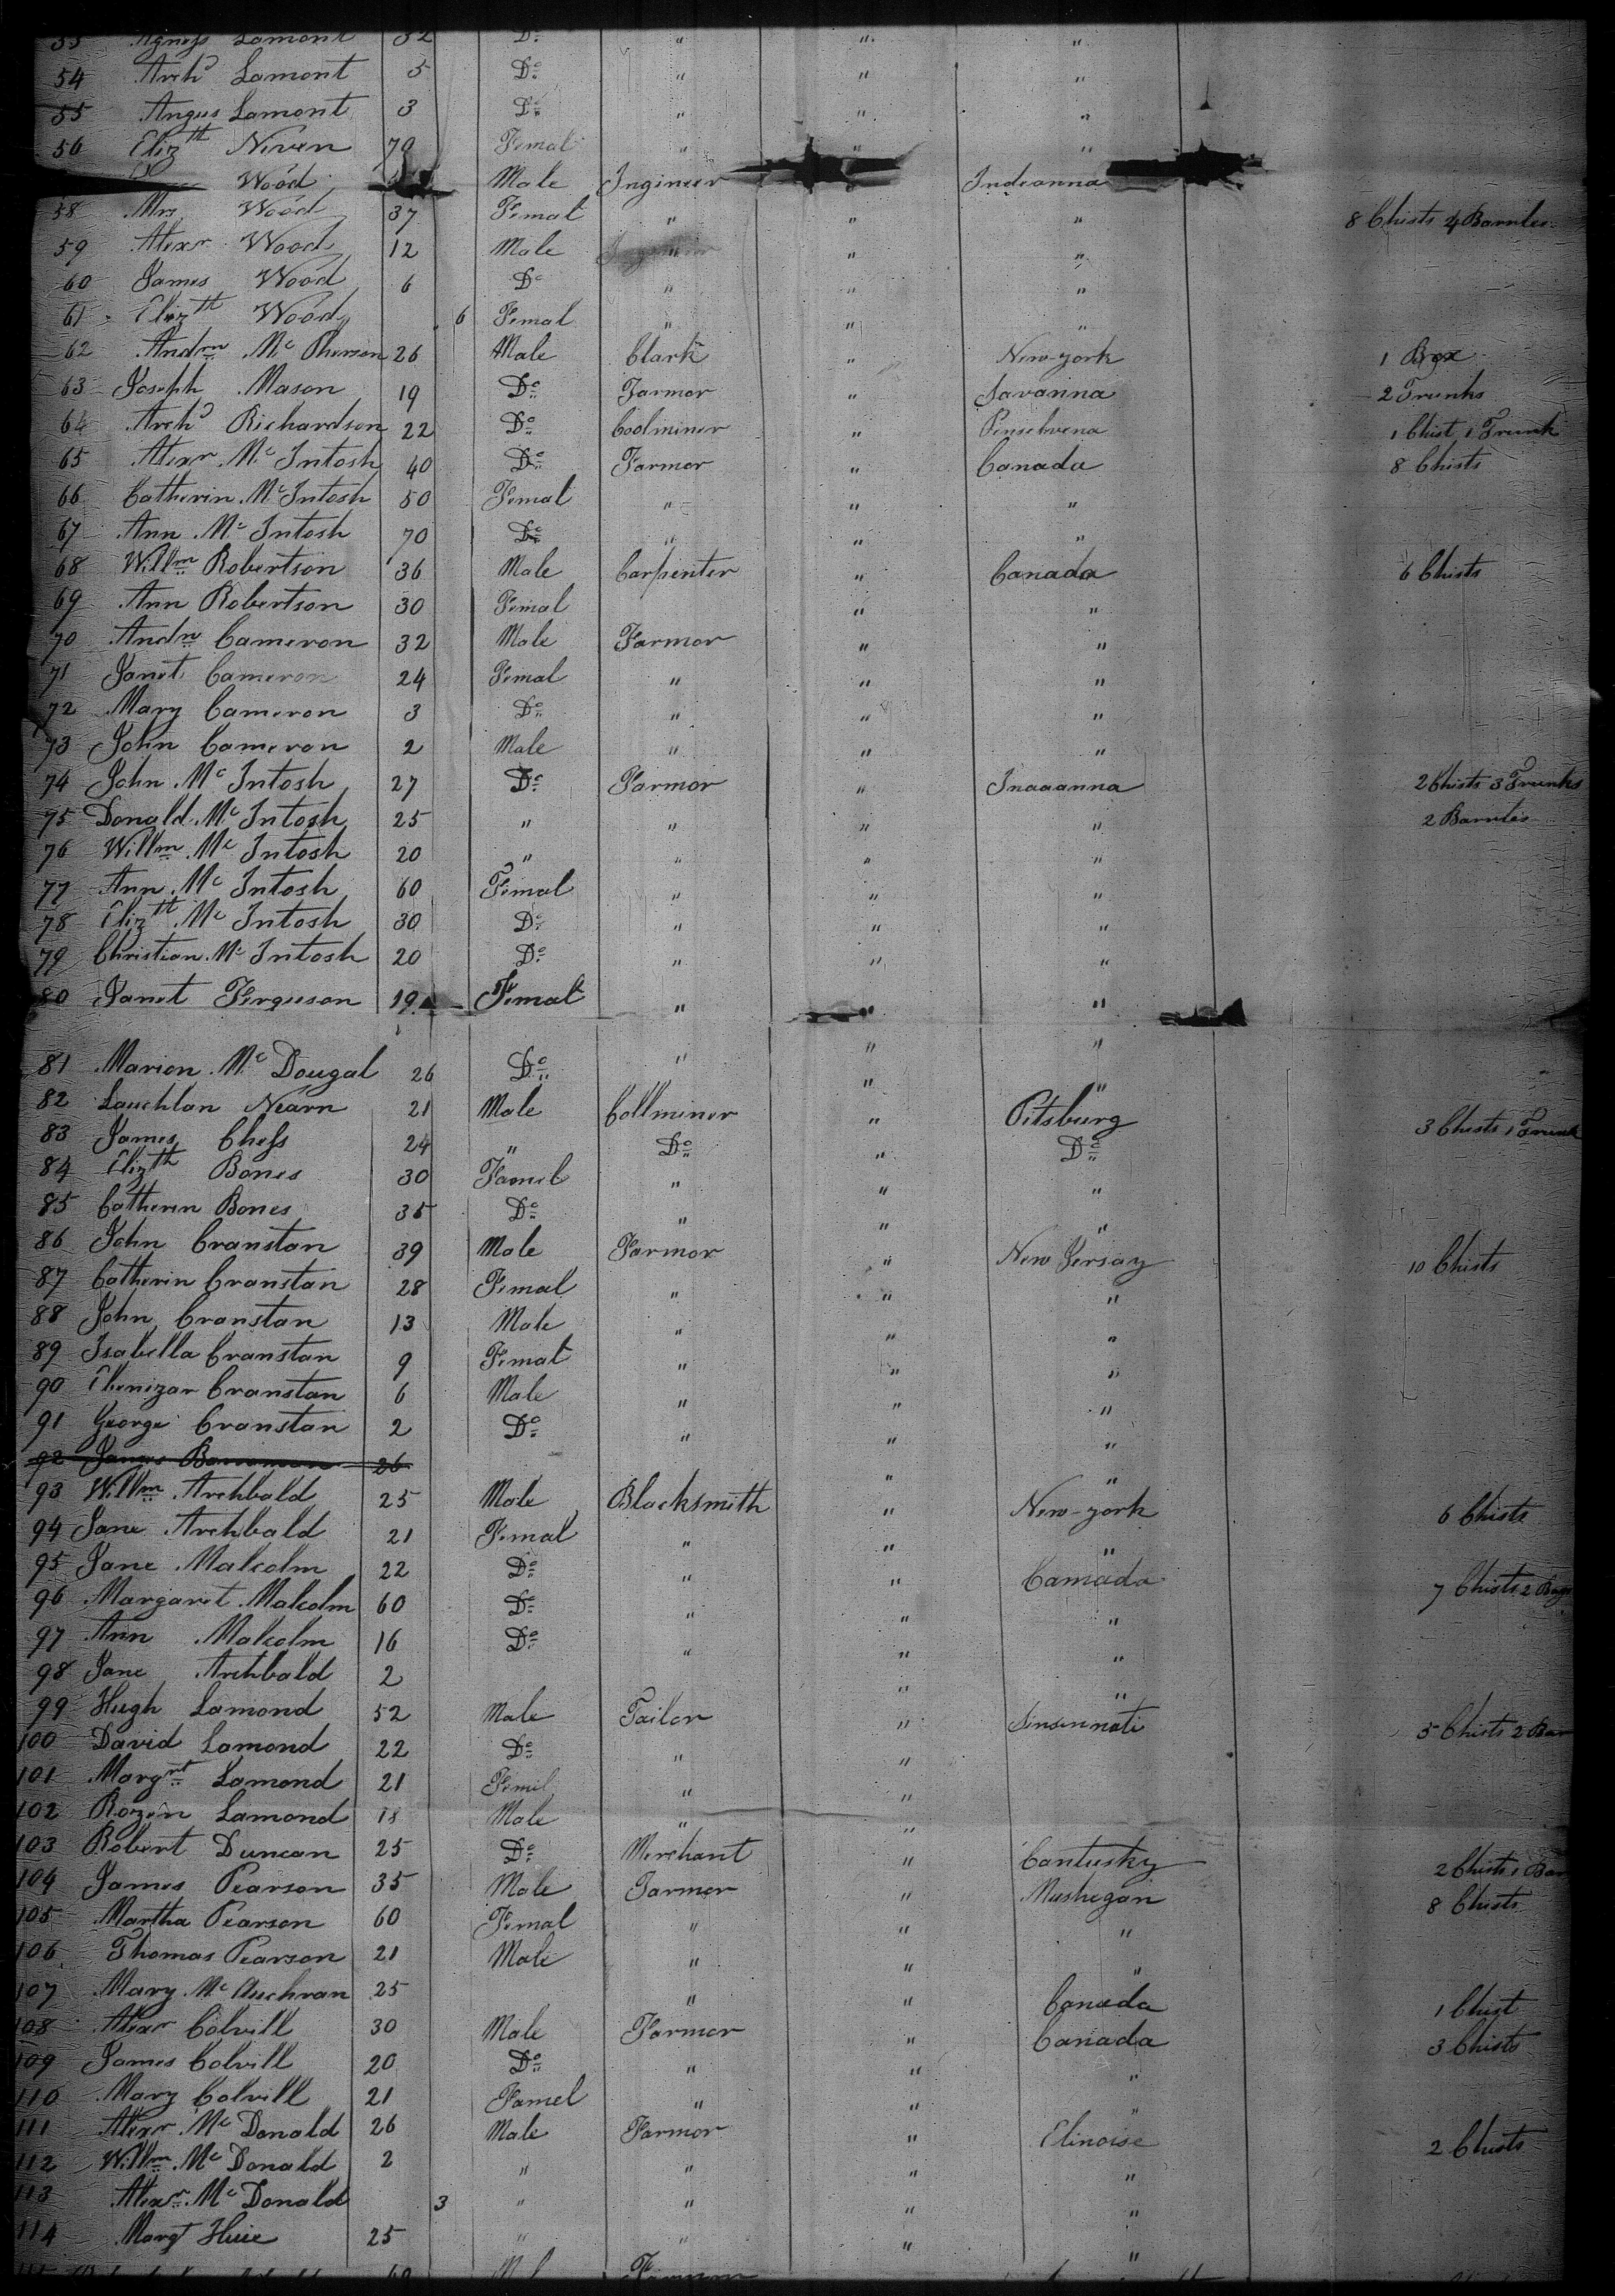 53 Agness Lamont 32 Do " " "
54 Archd Lamont 5 Do " " "
55 Angus Lamont 3 Do " " "
56 Elizth Niven 70 Femal " " "
Wood Male Ingineer Indeanna
58 Mrs Wood 37 Femal " " " 8 Chists 4 Barrles
59 Alexr Wood 12 Male " " "
60 James Wood 6 Do " " "
61 Elizth Wood 6 Femal " " "
62 Andrw McPherson 26 Male Clark " New-york 1 Box
63 Joseph Mason 19 Do Farmor " Savanna 2 Trunks
64 Archd Richardson 22 Do Coolminer " Penselvena 1 Chist 1 Trunk
65 Alexr McIntosh 40 Do Farmor " Canada 8 Chists
66 Catherin McIntosh 50 Femal " " "
67 Ann McIntosh 70 Do " " "
68 Willm Robertson 36 Male Carpenter " Canada 6 Chists
69 Ann Robertson 30 Femal " "
70 Andw Cameron 32 Male Farmor " "
71 Janet Cameron 24 Femal " " "
72 Mary Cameron 3 Do " " "
73 John Cameron 2 Male " " "
74 John McIntosh 27 Do Farmor " Inaaanna 2 Chists 3 Trunks
75 Donald McIntosh 25 " " " " 2 Barrles
76 Willm McIntosh 20 " " " "
77 Ann McIntosh 60 Femal " " "
78 Elizth McIntosh 30 Do " " "
79 Christian McIntosh 20 Do " " "
80 Janet Ferguson 19 Femal " " "
81 Marion McDougal 26 Do " " "
82 Lauchlan Nearn 21 Male Collminer " Pitsburg 3 Chists 1 Trunk
83 James Chess 24 " Do " Do
84 Elizth Bones 30 Famel " " "
85 Catheren Bones 35 Do " " "
86 John Cranstan 39 Male Farmor " New Jersay 10 Chists
87 Catherin Cranstan 28 Femal " " "
88 John Cranstan 13 Male " " "
89 Isabella Cranstan 9 Femal " " "
90 Ebenizar Cranstan 6 Male " " "
91 George Cranstan 2 Do " " "
92 James 26 " "
93 Willm Archbald 25 Male Blacksmith " New-york 6 Chists
94 Jane Archbald 21 Femal " " "
95 Jane Malcolm 22 Do " " Camada 7 Chists 2 Bags
96 Margaret Malcolm 60 Do " " "
97 Ann Malcolm 16 Do " " "
98 Jane Archbald 2 " "
99 Hugh Lamond 52 Male Tailor " Sinsennati 5 Chists 2 Bar
100 David Lamond 22 Do " "
101 Margrt Lamond 21 Femil " "
102 Rozen Lamond 18 Male " "
103 Robert Duncan 25 Do Merchant " Cantusky 2 Chists 1 Bar
104 James Pearson 35 Male Farmer " Mushegan 8 Chists
105 Martha Pearson 60 Femal " " "
106 Thomas Pearson 21 Male " " "
107 Mary McAuchran 25 " " Canada 1 Chist
108 Alexr Colvill 30 Male Farmor " Canada 3 Chists
109 James Colvill 20 Do " " "
110 Mary Colvill 21 Famel " " "
111 Alexr McDonald 26 Male Farmor " Elinoise 2 Chists
112 Willm McDonald 2 " " " "
113 Alexr McDonald 3 " " " "
114 Margt Huie 25 " " " "